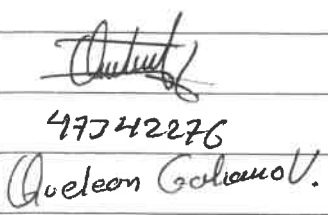 47342276
Quelean Galiano V.